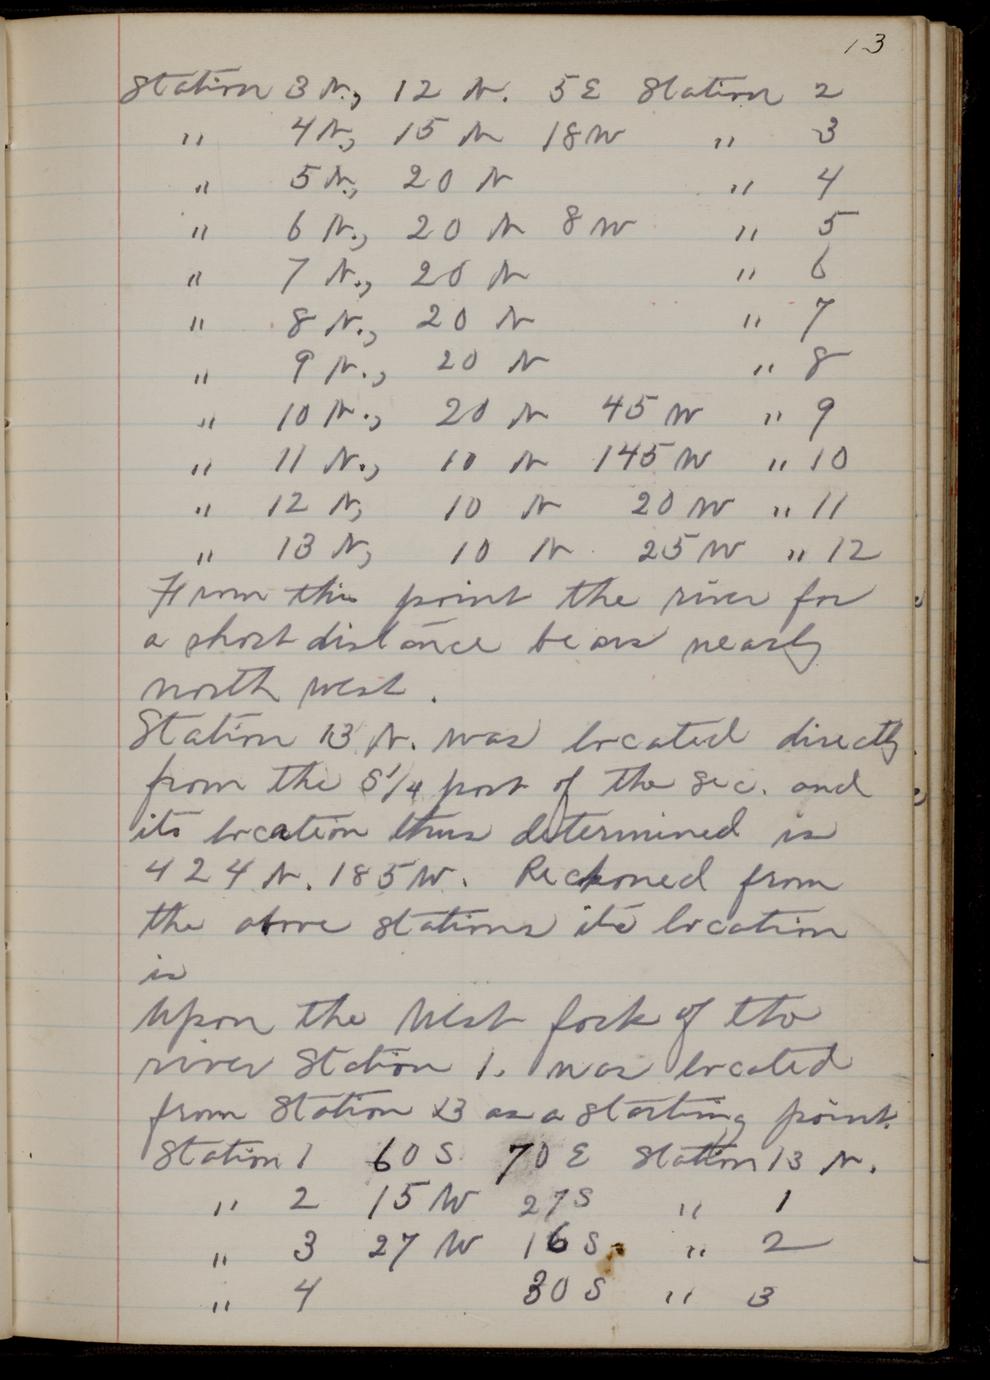 13
Station 3 N., 12 N. 5 E Station 2
" 4 N, 15 N 18 W " 3
" 5 N, 20 N " 4
" 6 N., 20 N 8 W " 5
" 7 N., 20 N " 6
" 8 N., 20 N " 7
" 9 N., 20 N " 8
" 10 N., 20 N 45 W " 9
" 11 N., 10 N 145 W " 10
" 12 N, 10 N 20 W " 11
" 13 N, 10 N. 25 W " 12
From this point the river for
a short distance bears nearly
north west.
Station 13 N. was located directly
from the S 1/4 post of the Sec. and
its location thus determined is
424 N. 185 W. Reckoned from
the above stations its location
is
Upon the West fork of the
river Station 1. was located
from Station 13 as a starting point.
Station 1 60 S 70 E Station 13 N.
" 2 15 W 27 S " 1
" 3 27 W 16 S " 2
" 4 30 S " 3